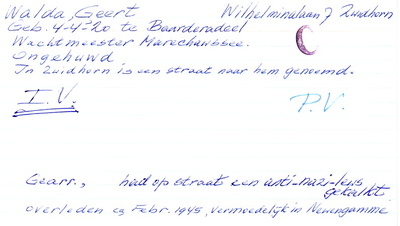 Walda, Geert Wilhelminalaan 7 Zuidhorn
Geb. 4-4-'20 te Baarderadeel
Wachtmeester Marechaussee.
Ongehuwd.
In Zuidhorn is een straat naar hem genoemd.
I.V. P.V.
Gearr., had op straat een anti-nazi-leus
gekalkt.
overleden eg Febr. 1945, vermoedelijk in Neuengamme